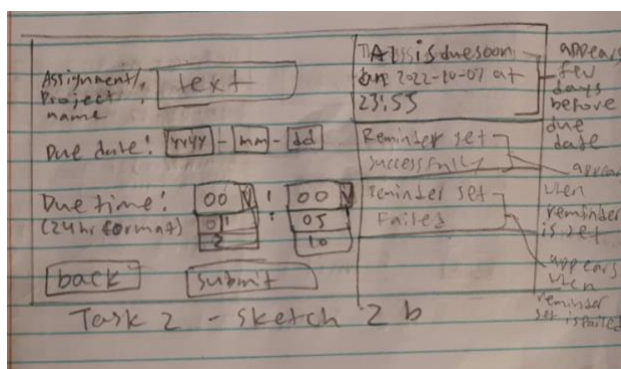 Assignment/
Project :
name
text
Due date: yyyy - mm - dd
Due time: 00 : 00
(24hr format) 01 : 05
2 10
back submit
A1 is due soon
2022-10-07 at
23:55
Reminder set
successfully
Reminder set
Failed
appears
few
days
before
due
date
appears
when
reminder
is set
appears
when
reminder
set is failed
Task 2 - Sketch 2 b